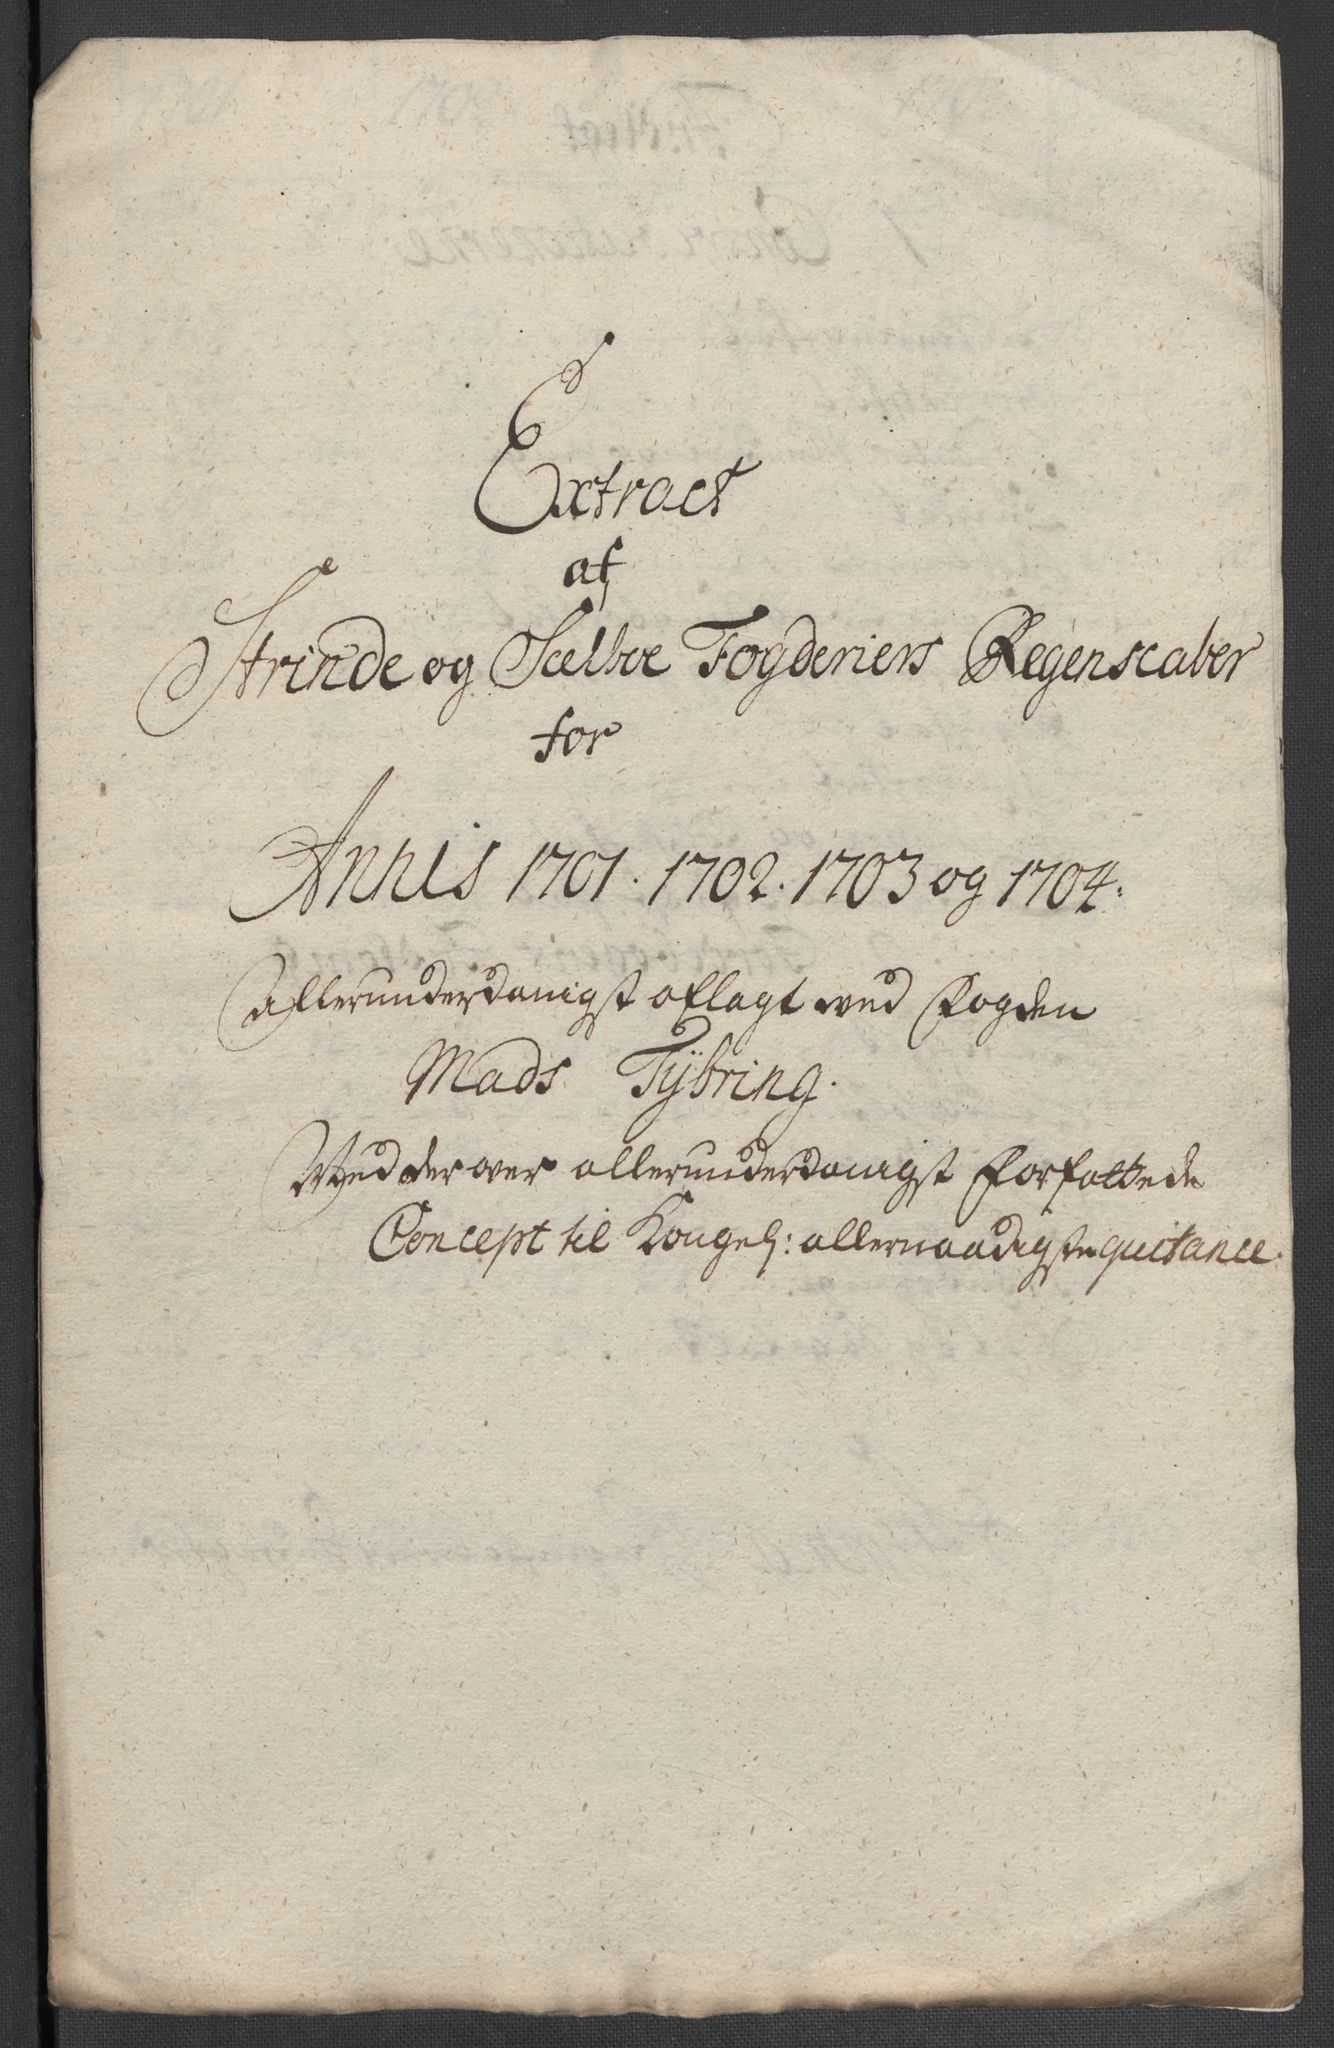 Extract
af
Strinde og Sælboe Fogderiers Regenscaber
for
Annis 1701. 1702. 1703 og 1704.
Allerunderdanigst aflagt ved Fogden
Mads Tÿbring.
Med derover allerunderdanigst forfattede
Concept til Kongel: allernaadigste quitance.